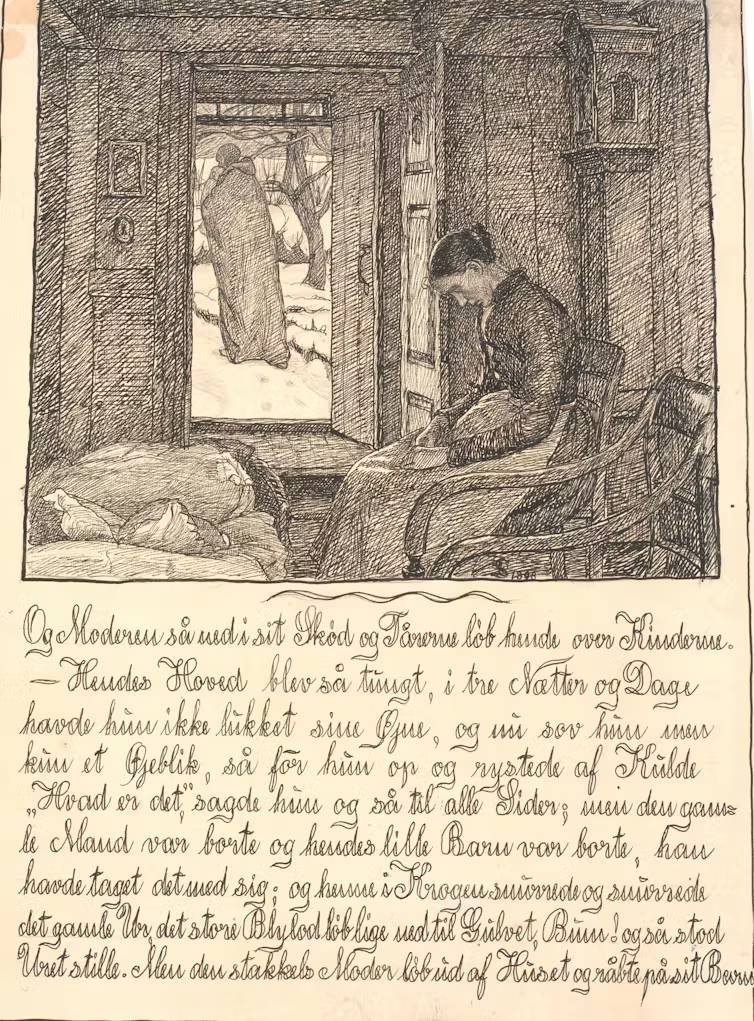 1898
Og Moderen så ned i sit Skød og Tårerne løb hende over Kinderne.
— Hendes Hoved blev så tungt, i tre Nætter og Dage
havde hun ikke lukket sine Øjne, og nu sov hun men
kun et Øjeblik, så fór hun op og rystede af Kulde
„Hvad er det,” sagde hun og så til alle Sider; men den gam=
le Mand var borte og hendes lille Barn var borte, han
havde taget det med sig; og henne i Krogen snurrede og snurrede
det gamle Ur, det store Blylod løb lige ned til Gulvet, Bum! og så stod
Uret stille. Men den stakkels Moder løb ud af Huset og råbte på sit Barn